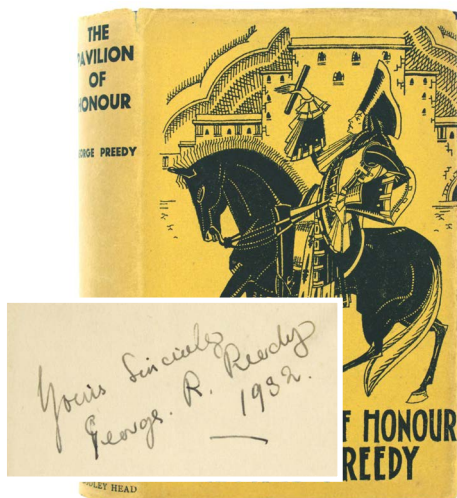 THE
PAVILION
OF
HONOUR
GEORGE PREEDY
Yours Sincerely
George. R. Preedy
1932.
F HONOUR
REEDY
ODLEY HEAD